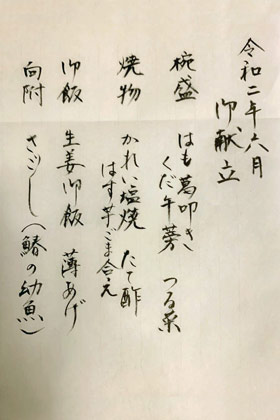 令和二年六月
御献立
椀盛 はも葛叩き つる菜
くだ牛蒡
焼物 かれい塩焼 たて酢
はす芋ごま合え
御飯 生姜御飯 薄あげ
向附 さごし(鰆の幼魚)